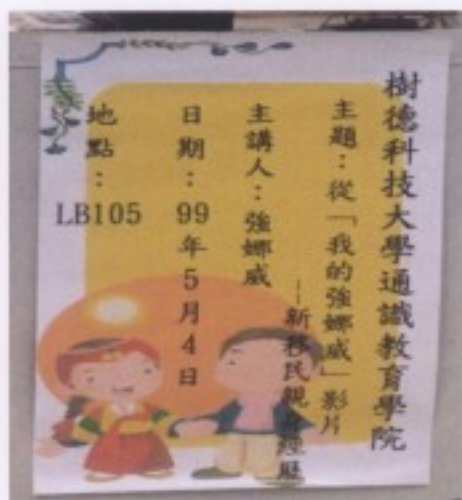 樹德科技大學通識教育學院
主題：從「我的強娜威」影片
--新移民親身經歷
主講人：強娜威
日期：99年5月4日
地點：LB105